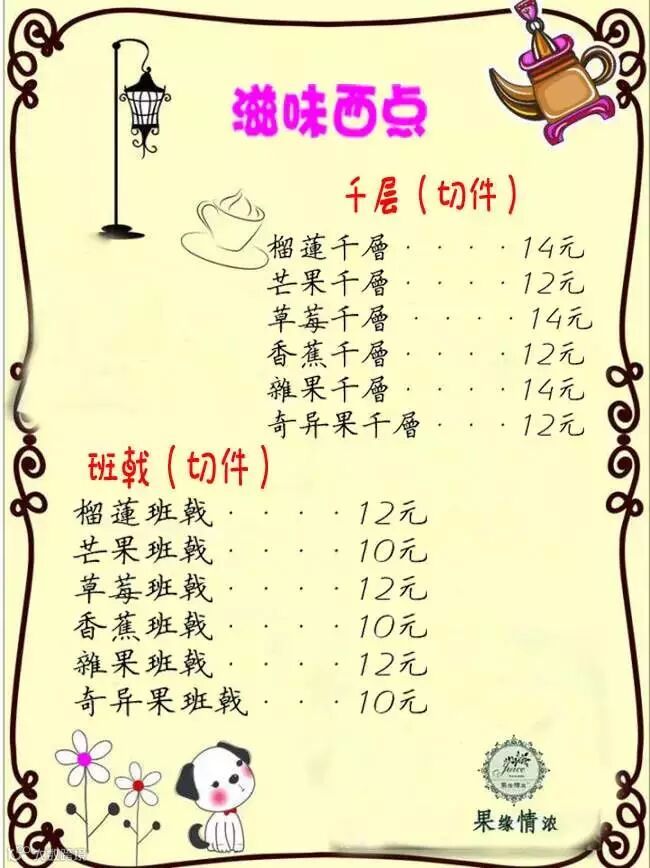 滋味西点
千层（切件）
榴蓮千層····14元
芒果千層····12元
草莓千層····14元
香蕉千層····12元
雜果千層····14元
奇异果千層····12元
班戟（切件）
榴蓮班戟····12元
芒果班戟····10元
草莓班戟····12元
香蕉班戟····10元
雜果班戟····12元
奇异果班戟····10元
Juice
果缘情浓
果缘情浓